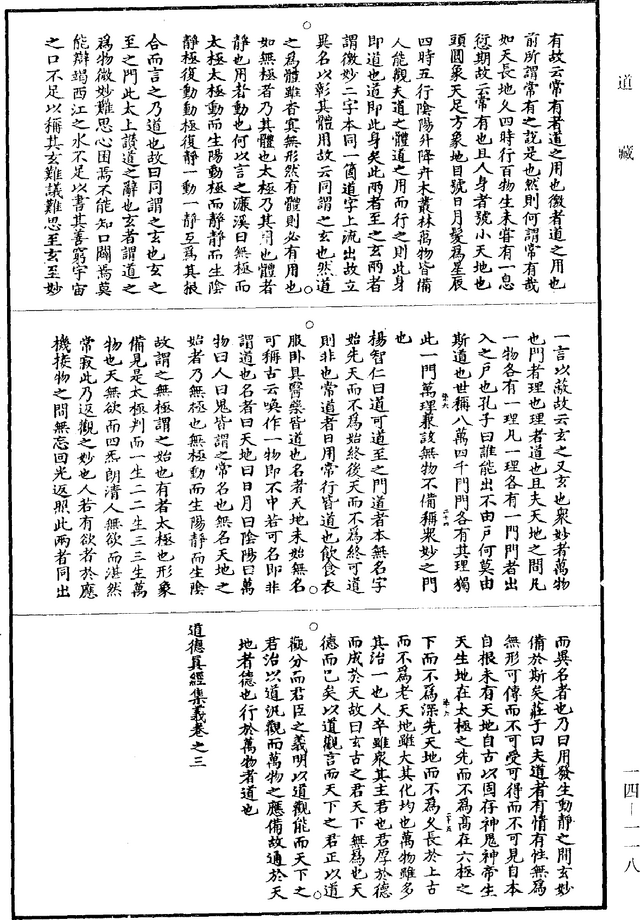 道藏
有故云常有者道之用也徼者道之用也
前所謂常有之說是也然則何謂常有哉
如天長地久四時行百物生未嘗有一息
愆期故云常有也且人身者號小天地也
頭圓象天足方象地目號日月髮爲星辰
四時五行陰陽升降卉木叢林萬物皆備
人能觀夫道之體道之用而行之則此身
即道也道即此身矣此兩者至之玄兩者
謂微妙二字本同一箇道字上流出故立
異名以彰其體用故云同謂之玄也然道
之爲體雖杳冥無形然有體則必有用也
如無極者乃其體也太極乃其用也體者
靜也用者動也何以言之濂溪曰無極而
太極太極動而生陽動極而靜靜而生陰
靜極復動動極復靜一動一靜互爲其根
合而言之乃道也故曰同謂之玄也玄之
至之門此太上讚道之辭也玄者謂道之
爲物微妙難思心困焉不能知口闢焉莫
能辯竭西江之水不足以書其善窮宇宙
之口不足以稱其玄難議難思至玄至妙
一言以蔽故云玄之又玄也衆妙者萬物
也門者理也理者道也且夫天地之間凡
一物各有一理凡一理各有一門門者出
入之戶也孔子曰誰能出不由戶何莫由
斯道也世稱八萬四千門門各有其理獨
此一門萬理兼該無物不備稱衆妙之門
也
楊智仁曰道可道至之門道者本無名字
始先天而不爲始終後天而不爲終可道
則非也常道者日用常行皆道也飲食衣
服卧具醫藥皆道也名者天地未始無名
可稱古云喚作一物即不中若可名即非
謂道也名者曰天地曰日月曰陰陽曰萬
物曰人曰鬼皆謂之常名也無名天地之
始者乃無極也無極動而生陽靜而生陰
故謂之無極謂之始也有者太極也形象
備見是太極判而一生二二生三三生萬
物也天無欲而四炁朗清人無欲而湛然
常寂此乃返觀之妙也人若有欲者於應
機接物之間無忘回光返照此兩者同出
而異名者也乃日用發生動靜之間玄妙
備於斯矣莊子曰夫道者有情有性無爲
無形可傳而不可受可得而不可見自本
自根未有天地自古以固存神鬼神帝生
天生地在太極之先而不爲高在六極之
下而不爲深先天地而不爲久長於上古
而不爲老天地雖大其化均也萬物雖多
其治一也人卒雖衆其主君也君厚於德
而成於天故曰玄古之君天下無爲也天
德而已矣以道觀言而天下之君正以道
觀分而君臣之義明以道觀能而天下之
君治以道汎觀而萬物之應備故通於天
地者德也行於萬物者道也
道德真經集義卷之三
一四—一一八